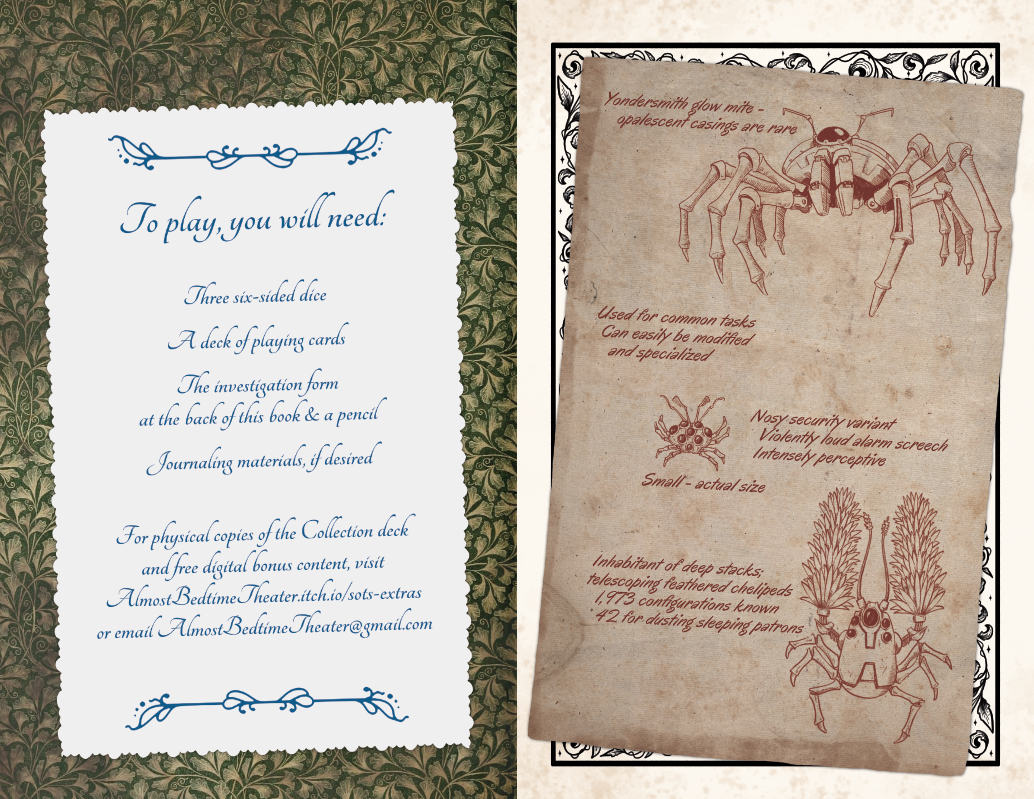 To play, you will need:
Three six-sided dice
A deck of playing cards
The investigation form
at the back of this book & a pencil
Journaling materials, if desired
For physical copies of the Collection deck
and free digital bonus content, visit
AlmostBedtimeTheater.itch.io/sots-extras
or email AlmostBedtimeTheater@gmail.com
Yondersmith glow mite -
opalescent casings are rare
Used for common tasks
Can easily be modified
and specialized
Nosy security variant
Violently loud alarm screech
Intensely perceptive
Small - actual size
Inhabitant of deep stacks;
telescoping feathered chelipeds
1,973 configurations known
42 for dusting sleeping patrons